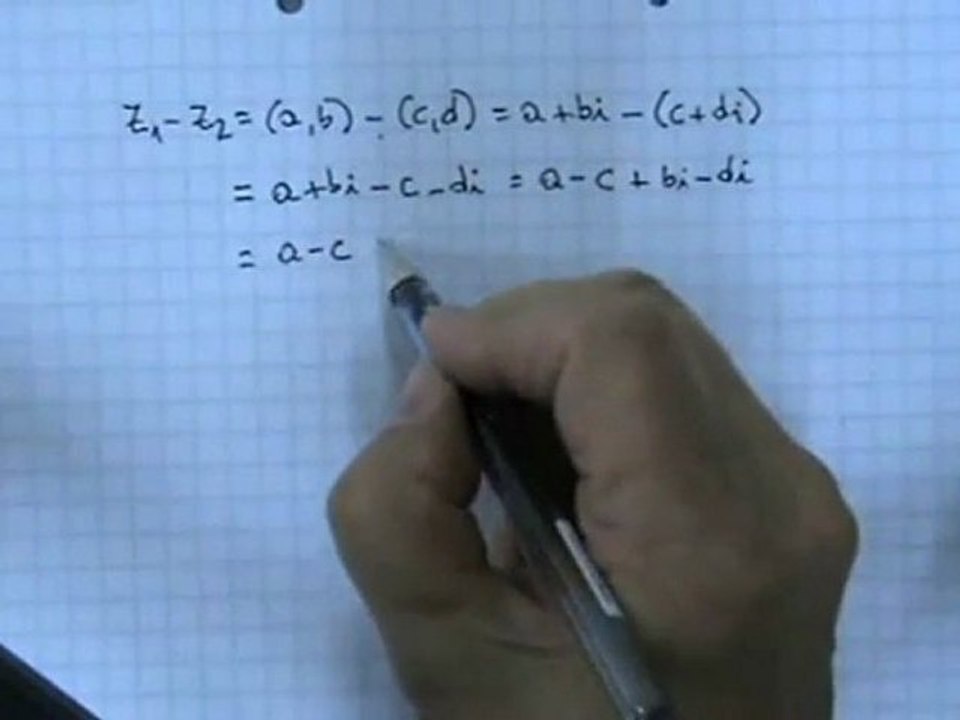 z₁ - z₂ = (a,b) - (c,d) = a + bi - (c + di)
= a + bi - c - di = a - c + bi - di
= a - c